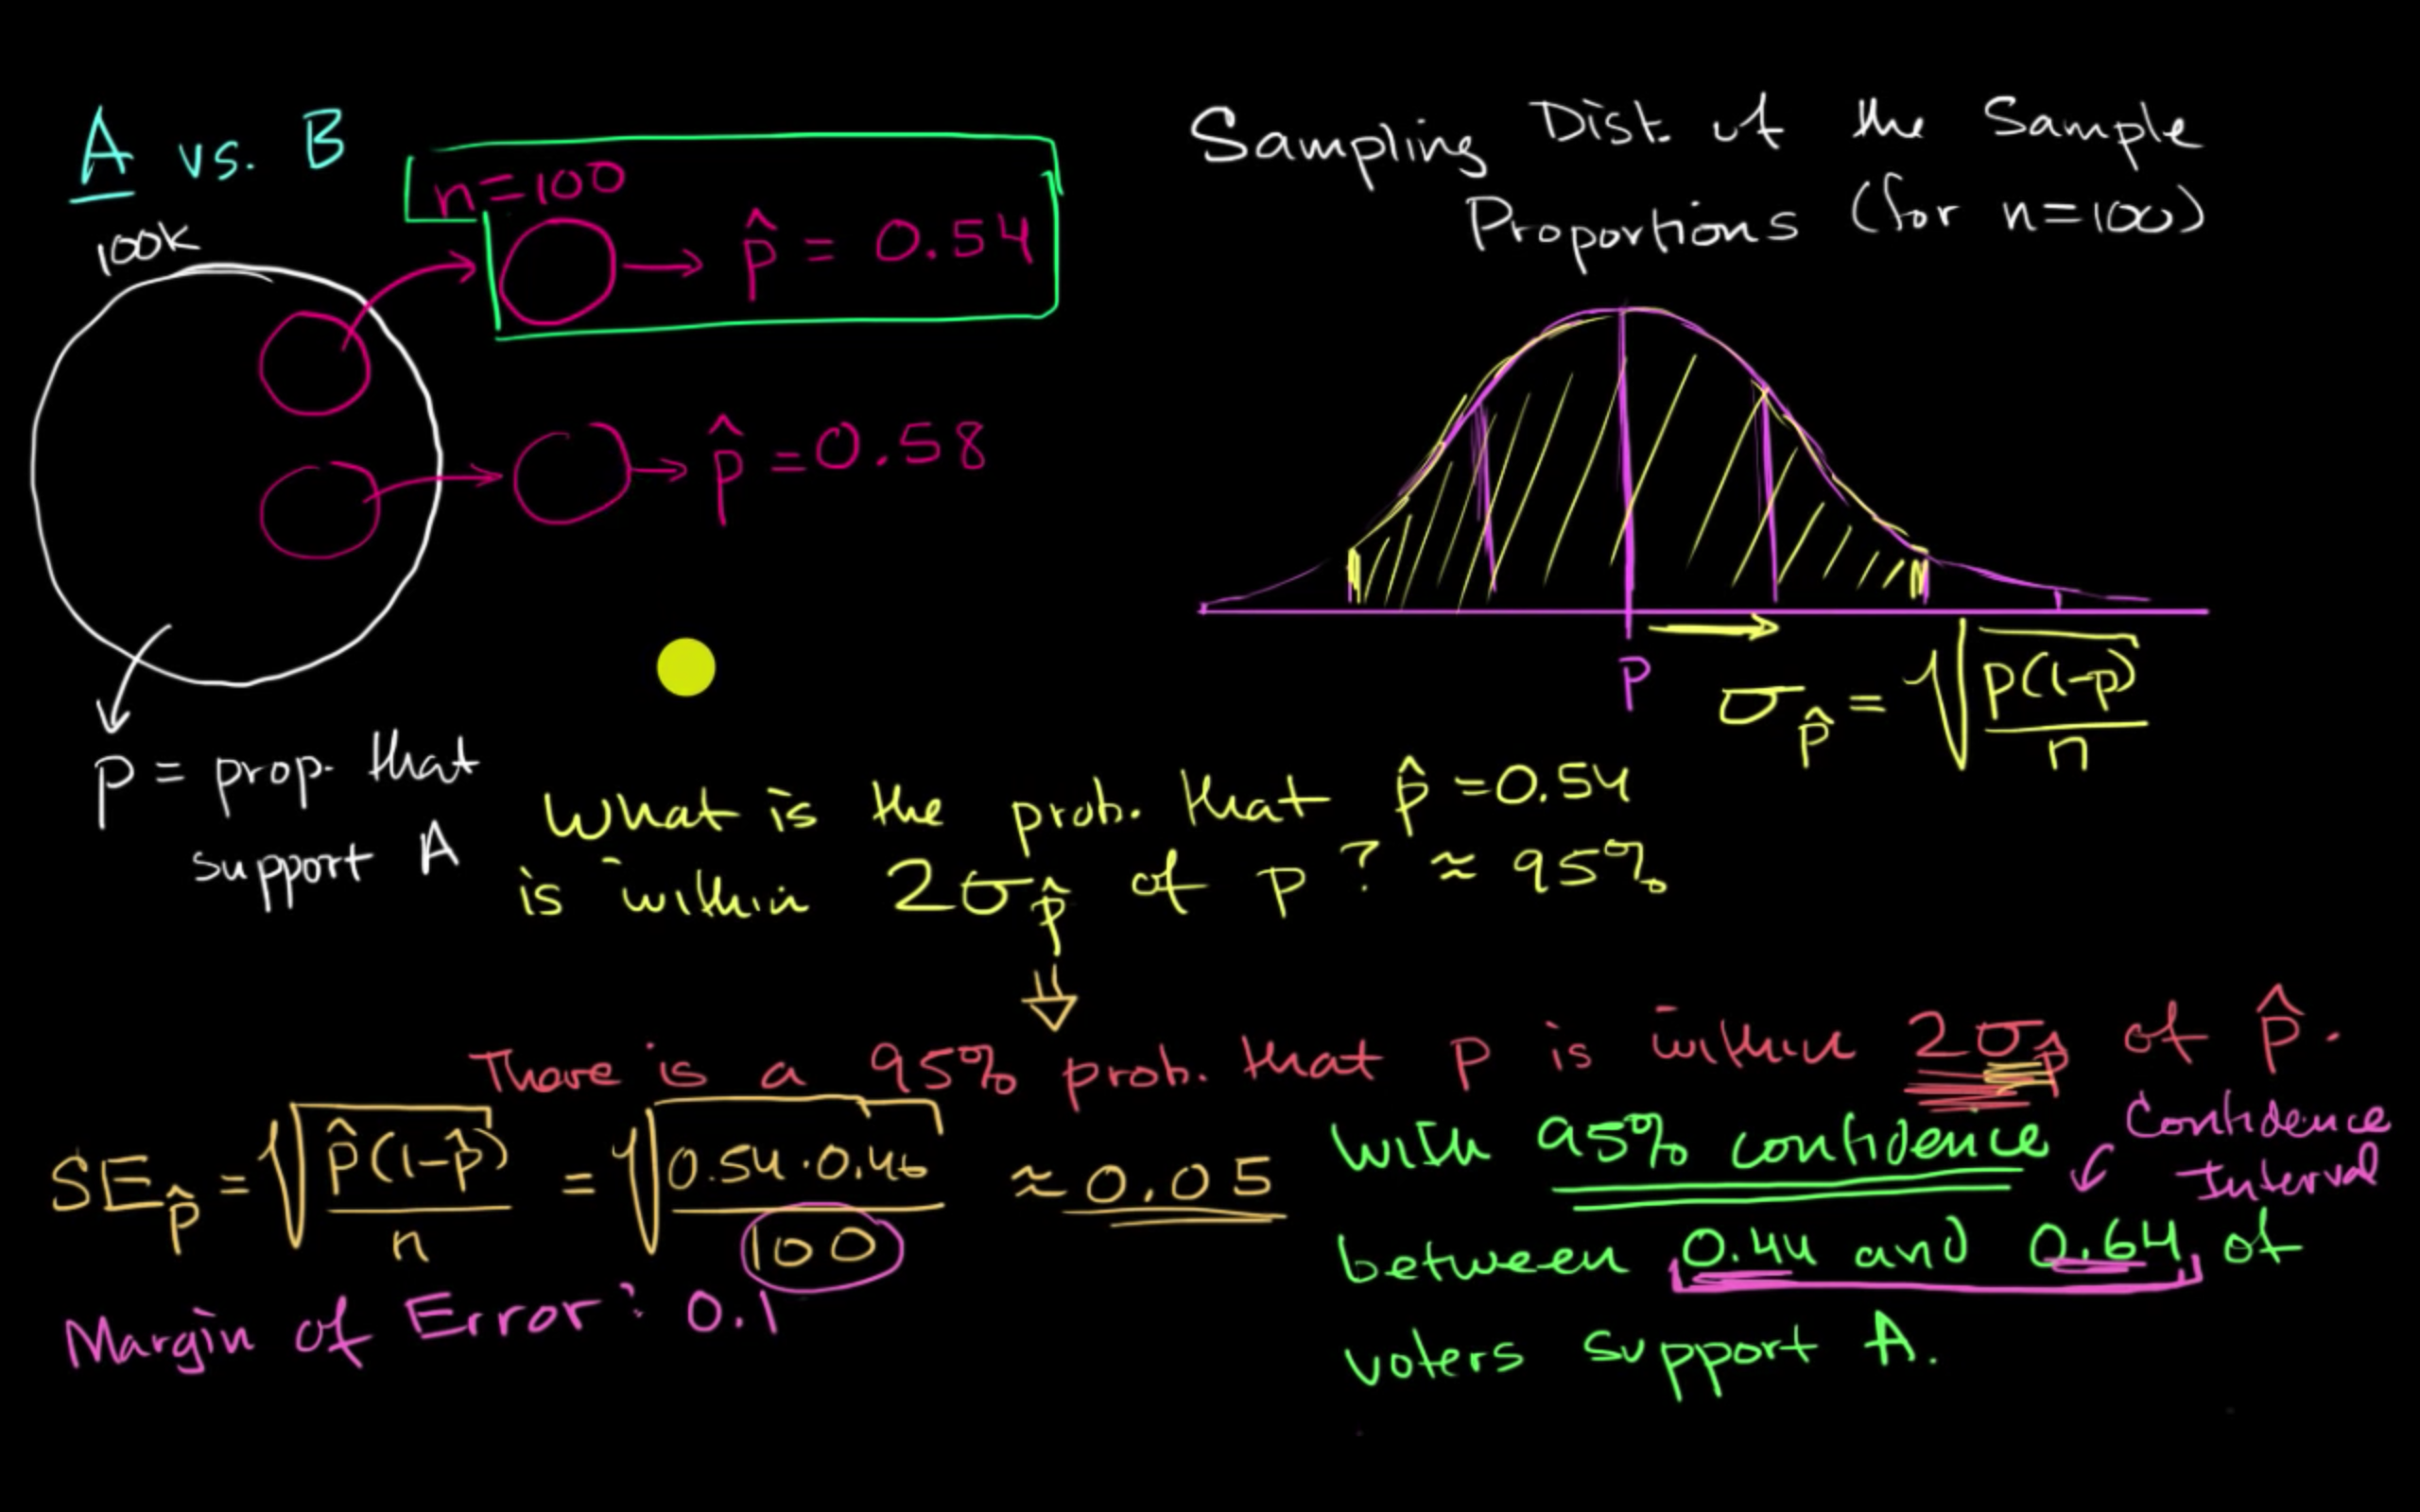 A vs. B
100k
n=100
p̂ = 0.54
p̂ = 0.58
p = prop. that
support A
Sampling Dist. of the Sample
Proportions (for n=100)
p
σ_p̂ = √(p(1-p)/n)
What is the prob. that p̂ = 0.54
is within 2σ_p̂ of p? ≈ 95%
There is a 95% prob. that p is within 2σ_p̂ of p̂.
SE_p̂ = √(p̂(1-p̂)/n) = √(0.54·0.46/100) ≈ 0.05
Margin of Error: 0.1
With 95% confidence
between 0.44 and 0.64 of
voters support A.
Confidence
Interval